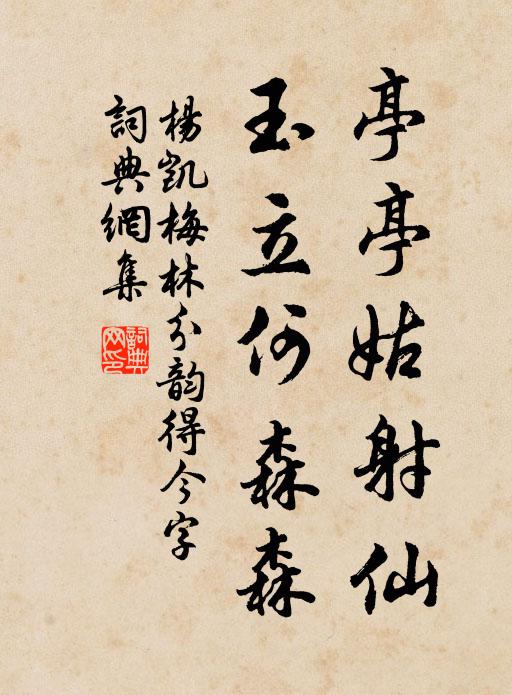 亭亭姑射仙
玉立何森森
楊凱梅林分韵得今字
詞典網集
詞典網印